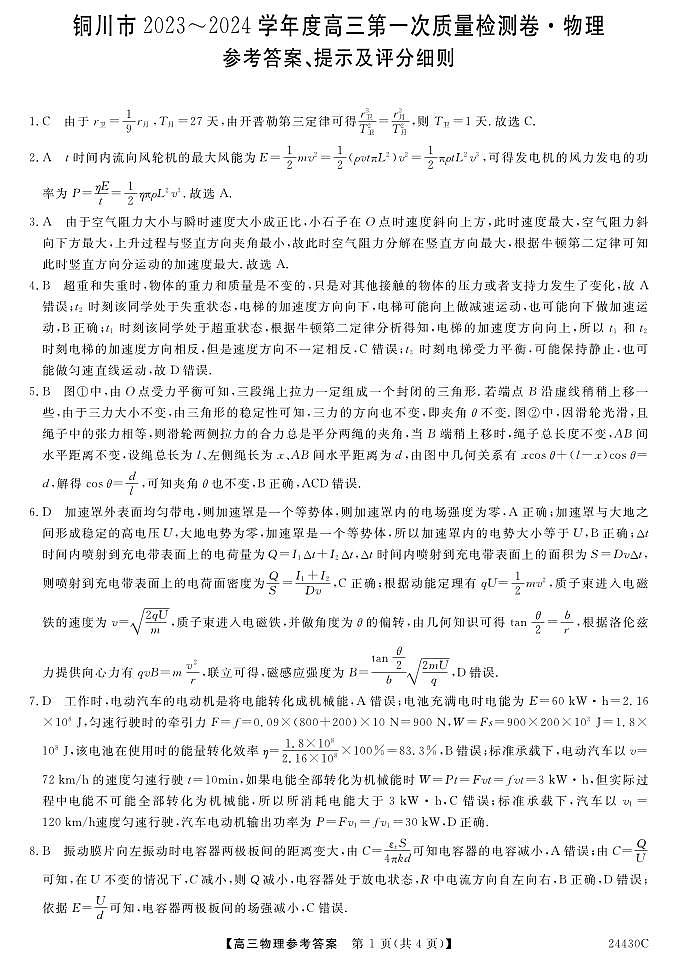 铜川市 2023～2024 学年度高三第一次质量检测卷·物理
参考答案、提示及评分细则
1. C 由于 r卫=1/9 r月,T月=27 天,由开普勒第三定律可得 r卫³/T卫²=r月³/T月²,则 T卫=1 天.故选 C.
2. A t 时间内流向风轮机的最大风能为 E=1/2 mv²=1/2(ρvtπL²)v²=1/2 πρtL²v³,可得发电机的风力发电的功
率为 P=ηE/t=1/2 ηπρL²v³.故选 A.
3. A 由于空气阻力大小与瞬时速度大小成正比,小石子在 O 点时速度斜向上方,此时速度最大,空气阻力斜
向下方最大,上升过程与竖直方向夹角最小,故此时空气阻力分解在竖直方向最大,根据牛顿第二定律可知
此时竖直方向分运动的加速度最大.故选 A.
4. B 超重和失重时,物体的重力和质量是不变的,只是对其他接触的物体的压力或者支持力发生了变化,故 A
错误;t₂ 时刻该同学处于失重状态,电梯的加速度方向向下,电梯可能向上做减速运动,也可能向下做加速运
动,B 正确;t₁ 时刻该同学处于超重状态,根据牛顿第二定律分析得知,电梯的加速度方向向上,所以 t₁ 和 t₂
时刻电梯的加速度方向相反,但是速度方向不一定相反,C 错误;t₃ 时刻电梯受力平衡,可能保持静止,也可
能做匀速直线运动,故 D 错误.
5. B 图①中,由 O 点受力平衡可知,三段绳上拉力一定组成一个封闭的三角形.若端点 B 沿虚线稍稍上移一
些,由于三力大小不变,由三角形的稳定性可知,三力的方向也不变,即夹角 θ 不变.图②中,因滑轮光滑,且
绳子中的张力相等,则滑轮两侧拉力的合力总是平分两绳的夹角,当 B 端稍上移时,绳子总长度不变,AB 间
水平距离不变,设绳总长为 l、左侧绳长为 x、AB 间水平距离为 d,由图中几何关系有 xcos θ+(l-x)cos θ=
d,解得 cos θ=d/l,可知夹角 θ 也不变,B 正确,ACD 错误.
6. D 加速罩外表面均匀带电,则加速罩是一个等势体,则加速罩内的电场强度为零,A 正确;加速罩与大地之
间形成稳定的高电压 U,大地电势为零,加速罩是一个等势体,所以加速罩内的电势大小等于 U,B 正确;Δt
时间内喷射到充电带表面上的电荷量为 Q=I₁Δt+I₂Δt,Δt 时间内喷射到充电带表面上的面积为 S=DvΔt,
则喷射到充电带表面上的电荷面密度为 Q/S=(I₁+I₂)/Dv,C 正确;根据动能定理有 qU=1/2 mv²,质子束进入电磁
铁的速度为 v=√(2qU/m),质子束进入电磁铁,并做角度为 θ 的偏转,由几何知识可得 tan θ/2=b/r,根据洛伦兹
力提供向心力有 qvB=m v²/r,联立可得,磁感应强度为 B=(tan θ/2)/b √(2mU/q),D 错误.
7. D 工作时,电动汽车的电动机是将电能转化成机械能,A 错误;电池充满电时电能为 E=60 kW·h=2.16
×10⁸ J,匀速行驶时的牵引力 F=f=0.09×(800+200)×10 N=900 N,W=Fs=900×200×10³ J=1.8×
10⁸ J,该电池在使用时的能量转化效率 η=(1.8×10⁸)/(2.16×10⁸)×100%=83.3%,B 错误;标准承载下,电动汽车以 v=
72 km/h 的速度匀速行驶 t=10min,如果电能全部转化为机械能时 W=Pt=Fvt=fvt=3 kW·h,但实际过
程中电能不可能全部转化为机械能,所以所消耗电能大于 3 kW·h,C 错误;标准承载下,汽车以 v₁=
120 km/h速度匀速行驶,汽车电动机输出功率为 P=Fv₁=fv₁=30 kW,D 正确.
8. B 振动膜片向左振动时电容器两极板间的距离变大,由 C=εᵣS/4πkd 可知电容器的电容减小,A 错误;由 C=Q/U
可知,在 U 不变的情况下,C 减小,则 Q 减小,电容器处于放电状态,R 中电流方向自左向右,B 正确,D 错误;
依据 E=U/d 可知,电容器两极板间的场强减小,C 错误.
【高三物理参考答案 第 1 页(共 4 页)】 24430C